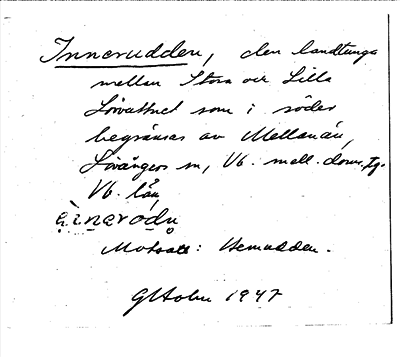 Innerudden, den landtunga
mellan Stora och Lilla
Lövvattnet som i söder
begränsas av Mellanån,
Lövångers sn, Vb. mell. doms. tg.
Vb. län
Motsats: Hemudden.
Oktober 1947